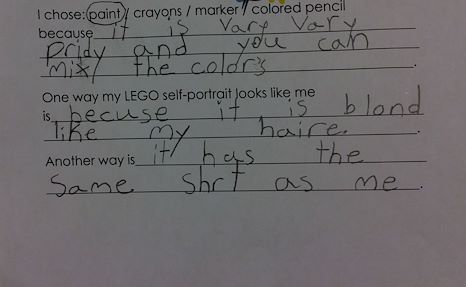 I chose: paint / crayons / marker / colored pencil
because it is Vary Vary
Pridy and you can
mix the color's .
One way my LEGO self-portrait looks like me
is becuse it is blond
like my haire.
Another way is it has the
Same Shrt as me .